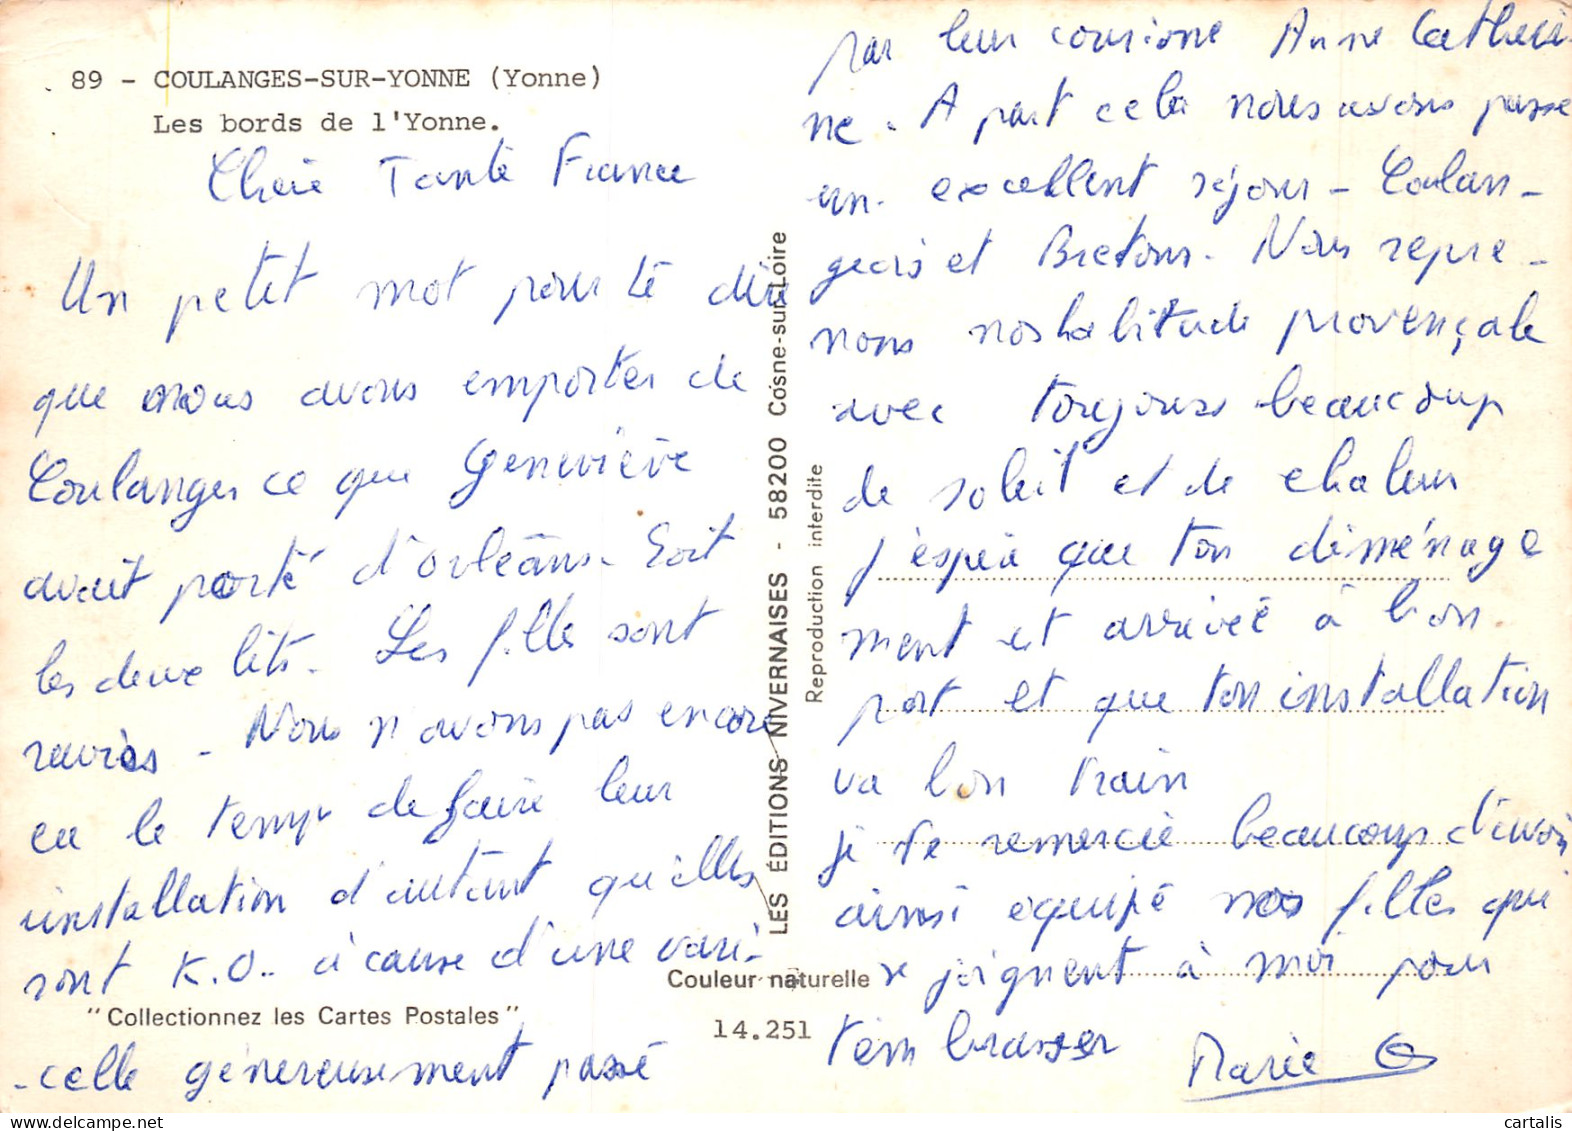 89 - COULANGES-SUR-YONNE (Yonne)
Les bords de l'Yonne.
Chère Tante France
Un petit mot pour te dire
que nous avons emporter de
Coulanges ce que Geneviève
avait porté d'Orléans. Soit
les deux lits. Les fille sont
ravies - Nous n'avons pas encore
eu le temps de faire leur
installation d'autant qu'elles
sont K.O.. à cause d'une vari-
"Collectionnez les Cartes Postales"
-celle généreusement passé
LES ÉDITIONS NIVERNAISES - 58200 Cosne-sur-Loire
Reproduction interdite
Couleur naturelle
14.251
par leur cousione Anne Catheri-
ne. A part cela nous avons passe
un excellent séjour - Coulan-
geois et Bretons. Nous repre-
nons nos habitude provençale
avec toujours beaucoup
de soleil et de chaleur
j'espère que ton diménage
ment et arrivée à bon
port et que ton installation
va bon train
je te remercie beaucoup d'avoir
ainsi equipé nos filles qui
se joignent à moi pour
t'embrasser
Marie
cartalis